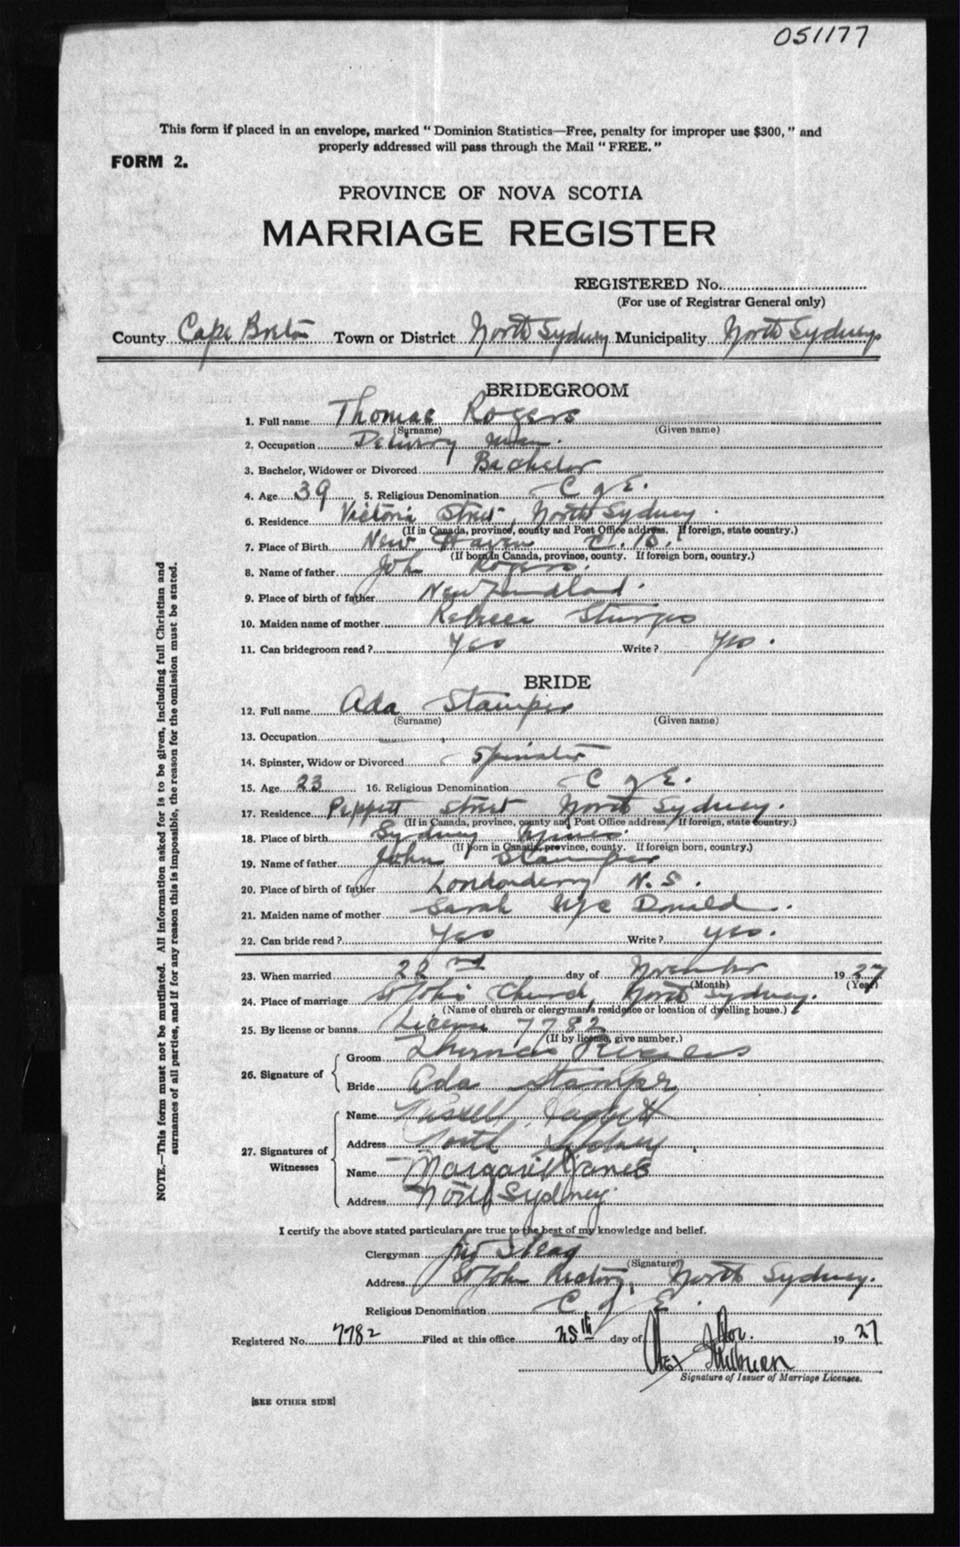 051177
This form if placed in an envelope, marked "Dominion Statistics—Free, penalty for improper use $300," and
properly addressed will pass through the Mail "FREE."
FORM 2.
PROVINCE OF NOVA SCOTIA
MARRIAGE REGISTER
REGISTERED No.
(For use of Registrar General only)
County Cape Breton Town or District North Sydney Municipality North Sydney
BRIDEGROOM
1. Full name Thomas Rogers
(Surname) (Given name)
2. Occupation Delivery man.
3. Bachelor, Widower or Divorced Bachelor
4. Age 39 5. Religious Denomination C of E.
6. Residence Victoria Street, North Sydney.
(If in Canada, province, county and Post Office address. If foreign, state country.)
7. Place of Birth New Haven C. B.
(If born in Canada, province, county. If foreign born, country.)
8. Name of father John Rogers.
9. Place of birth of father Newfoundland.
10. Maiden name of mother Rebecca Sturges
11. Can bridegroom read? Yes Write? Yes.
BRIDE
12. Full name Ada Stamper
(Surname) (Given name)
13. Occupation
14. Spinster, Widow or Divorced Spinster
15. Age 23 16. Religious Denomination C of E.
17. Residence Peppett Street North Sydney.
(If in Canada, province, county and Post Office address. If foreign, state country.)
18. Place of birth Sydney Mines.
(If born in Canada, province, county. If foreign born, country.)
19. Name of father John Stamper
20. Place of birth of father Londonderry N.S.
21. Maiden name of mother Sarah McDonald.
22. Can bride read? Yes Write? yes.
23. When married 22nd day of November 1927
(Month) (Year)
24. Place of marriage St John's Church, North Sydney.
(Name of church or clergyman's residence or location of dwelling house.)
25. By license or banns License 7782
(If by license, give number.)
26. Signature of
Groom Thomas Rogers
Bride Ada Stamper
27. Signatures of Witnesses
Name
Address North Sydney
Name Margaret Janes
Address North Sydney.
I certify the above stated particulars are true to the best of my knowledge and belief.
Clergyman
(Signature)
Address St John Rectory, North Sydney.
Religious Denomination C of E.
Registered No. 7782 Filed at this office 28th day of Nov. 1927
Alex
Signature of Issuer of Marriage Licenses.
[SEE OTHER SIDE]
NOTE.—This form must not be mutilated. All information asked for is to be given, including full Christian and
surnames of all parties, and if for any reason this is impossible, the reason for the omission must be stated.